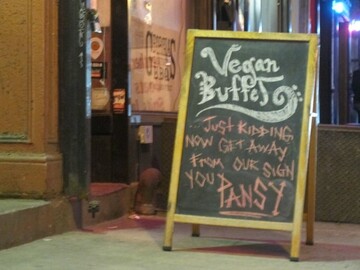 Vegan
BuffeT
Just Kidding
Now get away
from our sign
you Pansy